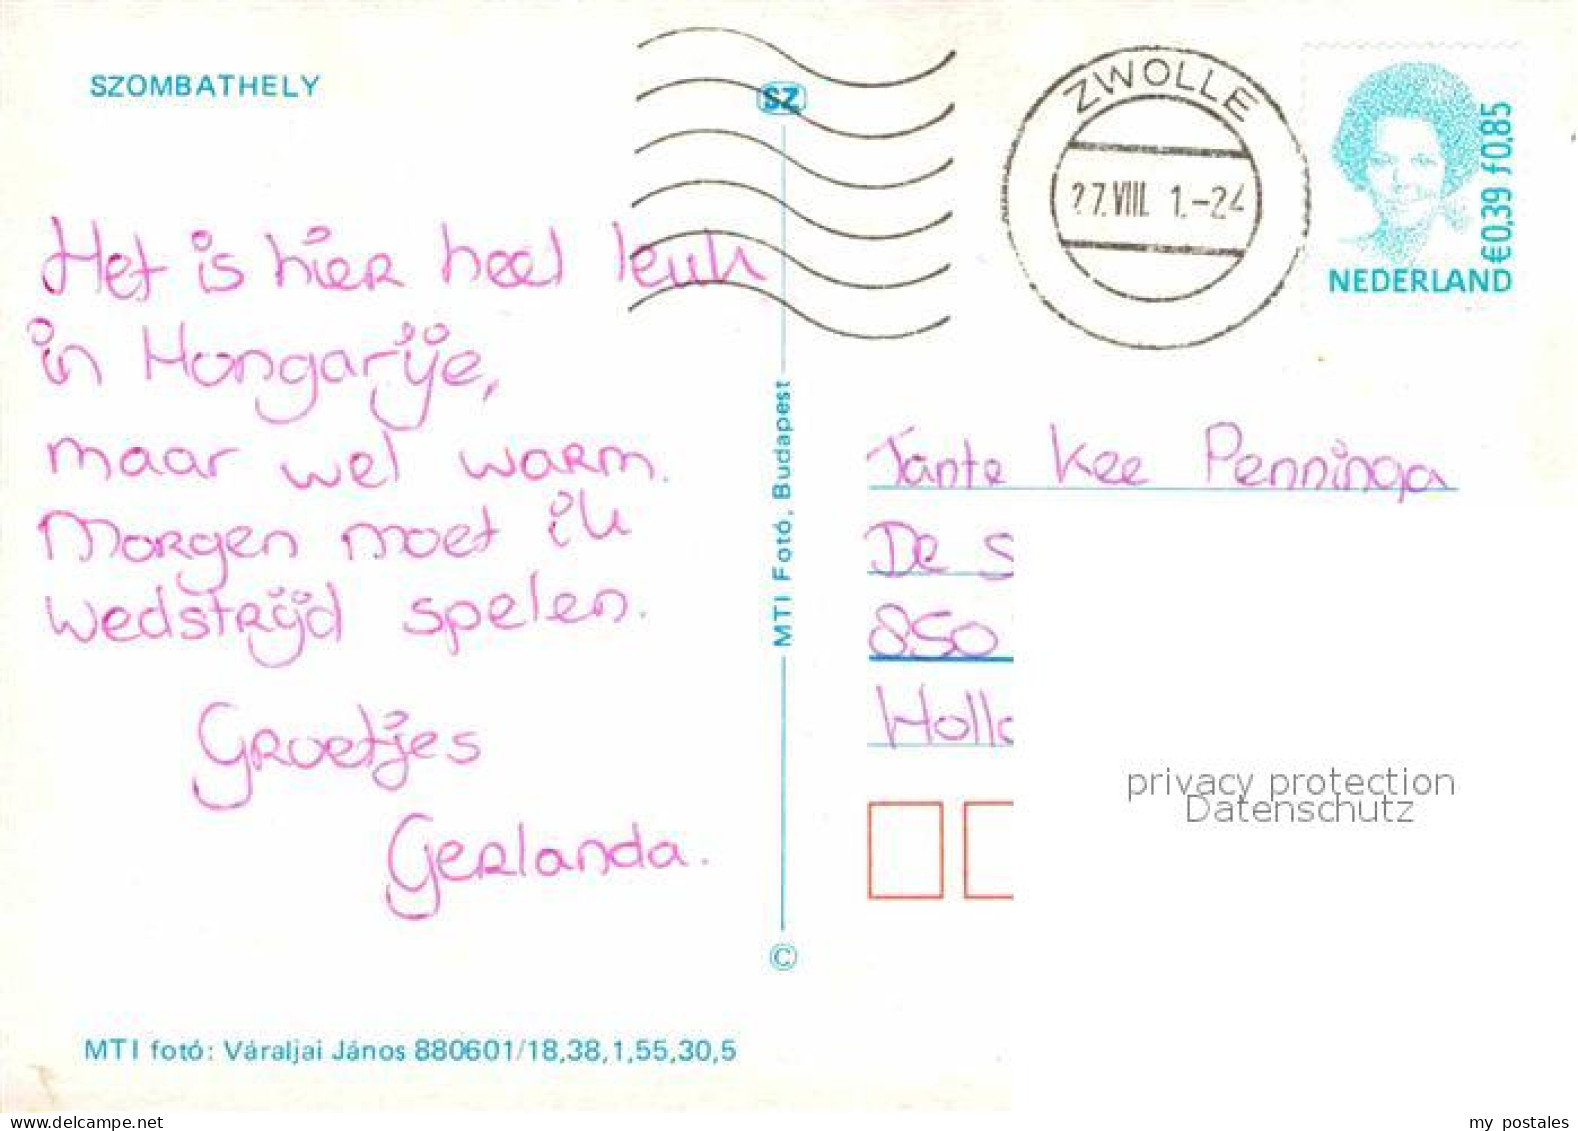 SZOMBATHELY
SZ
ZWOLLE
27.VIII. 1.-24
€0,39 f0,85
NEDERLAND
Het is hier heel leuk
in Hongarije,
maar wel warm.
Morgen moet ik
wedstrijd spelen.
Groetjes
Gerlanda.
MTI Fotó, Budapest
©
Tante Kee Penninga
De S
850
Holla
privacy protection
Datenschutz
MTI fotó: Váraljai János 880601/18,38,1,55,30,5
www.delcampe.net
my_postales